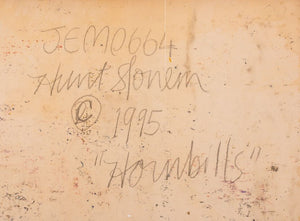 JEM0664
Hunt Slonem
© 1995
"Hornbills"